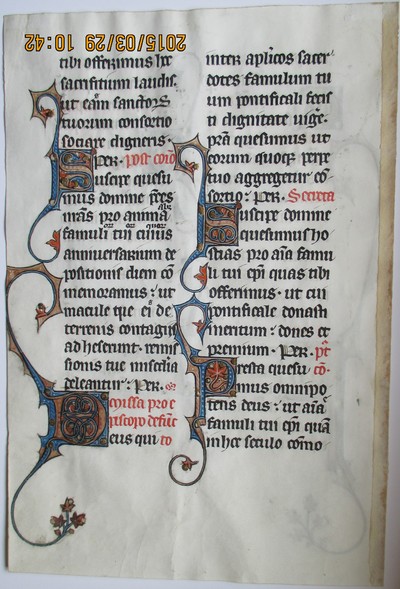 2015/03/29 10:42
tibi offerimus hec
sacrificium laudis.
ut eam sanctorum
tuorum consortio
sociare digneris.
Per. post com
Suscipe quesu
mus domine preces
nostras pro anima
famuli tui cuius
anniversarium de
positionis diem com
memoramus: ut
macule que ei de
terrenis contagiis
adheserunt. remis
sionis tue misericordia
deleantur: Per.
Missa pro e
piscopo defunct
Deus qui
inter apostolicos sacer
dotes famulum tu
um pontificali fecis
ti dignitate vige.
presta quesumus ut
eorum quoque perpe
tuo aggregetur con
sortio: Per. Secreta
Suscipe domine
quesumus ho
stias pro anima famu
li tui episcopi quas tibi
offerimus. ut cui
pontificale donasti
meritum. dones et
premium. Per.
Presta quesumus
omnipo
tens deus: ut anima
famuli tui episcopi quam
in hoc seculo